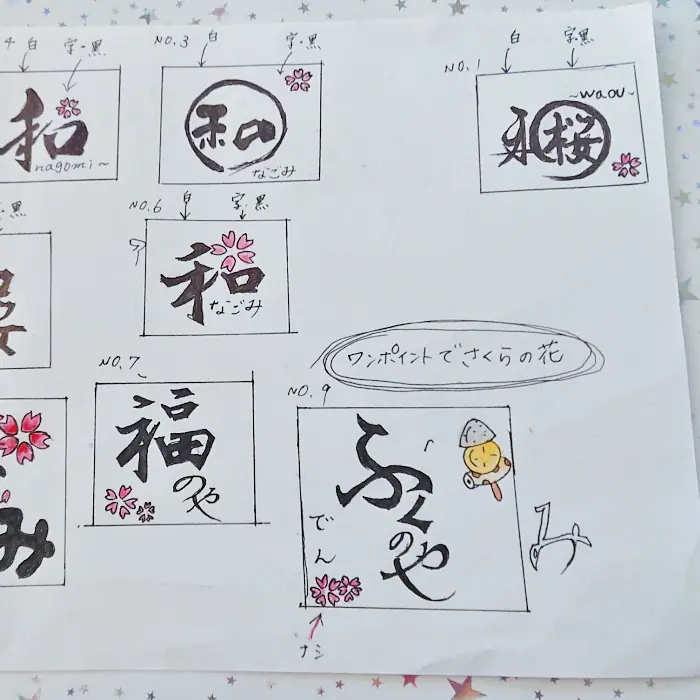 4 白 字・黒
和
nagomi~
NO.3 白 字・黒
和の
なごみ
NO.1 白 字・黒
~waou~
桜
・黒
NO.6 白 字・黒
和
なごみ
ワンポイントでさくらの花
NO.7
福
のや
NO.9
ふくのや
でん
ナシ
み
み